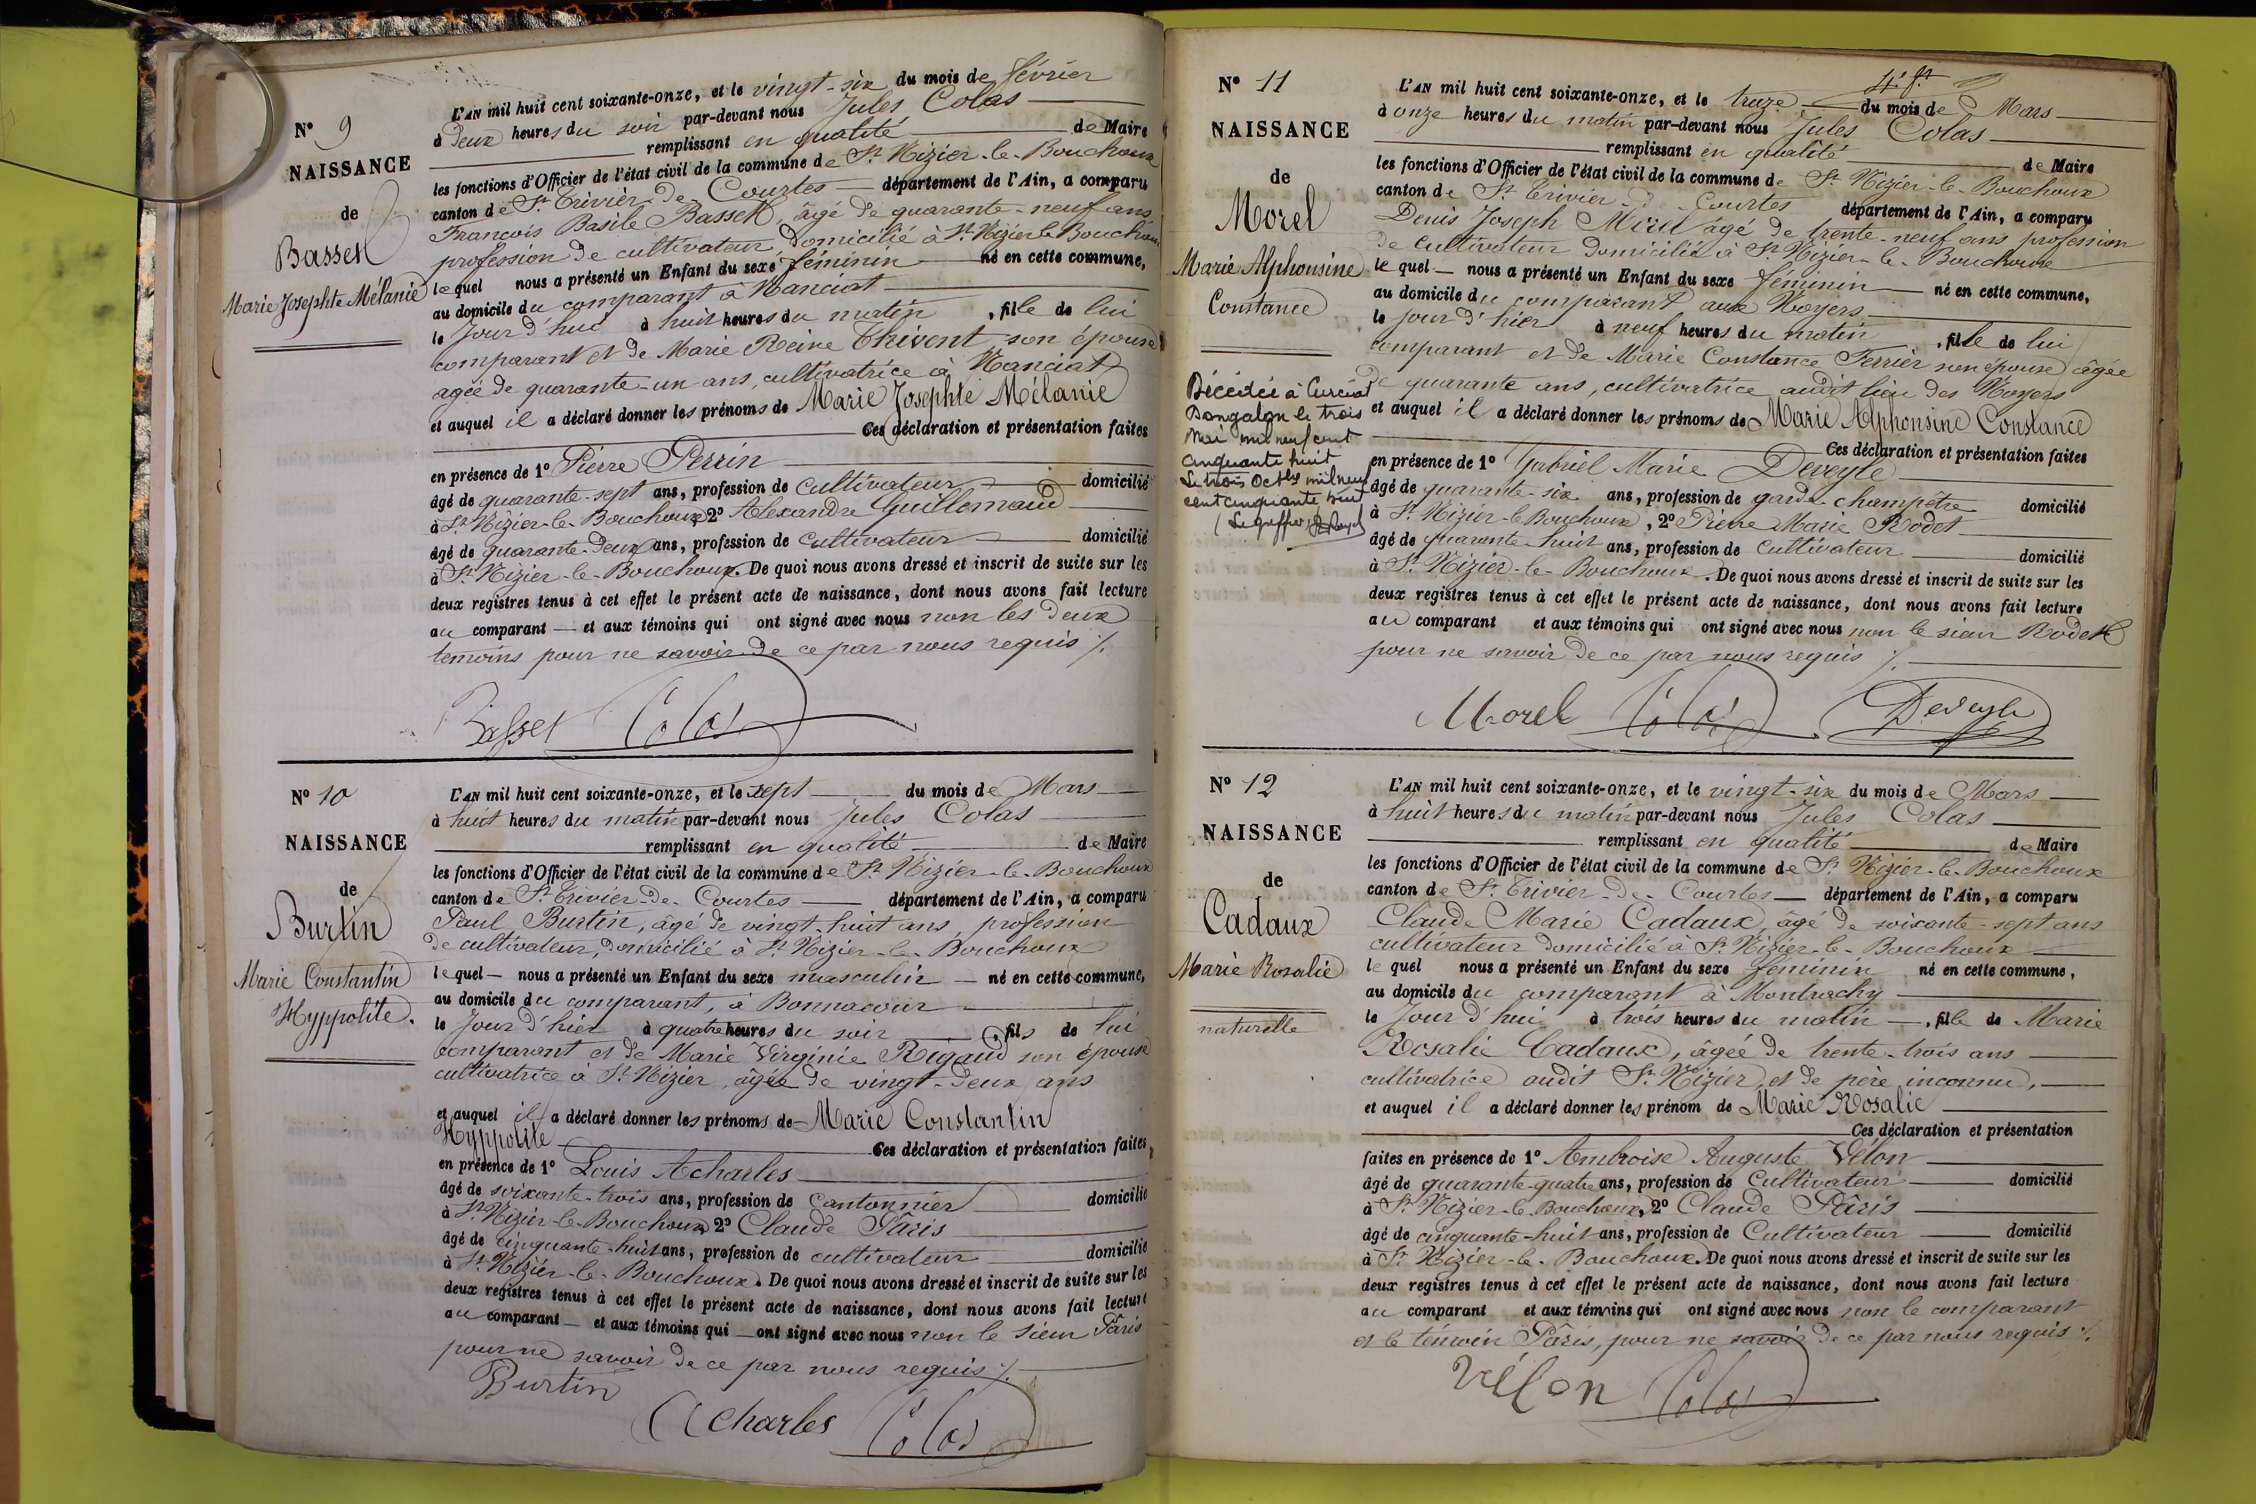 N° 9
NAISSANCE
de
Basset
Marie Josephte Mélanie
L'AN mil huit cent soixante-onze, et le vingt-six du mois de février
à deux heures du soir par-devant nous Jules Colas
remplissant en qualité de Maire
les fonctions d'Officier de l'état civil de la commune de St Nizier-le-Bouchoux
canton de St Trivier-de-Courtes département de l'Ain, a comparu
François Basile Basset, âgé de quarante-neuf ans
profession de cultivateur, domicilié à St Nizier le Bouchoux
lequel nous a présenté un Enfant du sexe féminin né en cette commune,
au domicile du comparant à Nanciat
le Jour d'hui à huit heures du matin, fille de lui
comparant et de Marie Reine Thivent, son épouse
agée de quarante-un ans, cultivatrice à Nanciat
et auquel il a déclaré donner les prénoms de Marie Josephte Mélanie
Ces déclaration et présentation faites
en présence de 1° Pierre Perrin
âgé de quarante-sept ans, profession de cultivateur domicilié
à St Nizier-le-Bouchoux, 2° Alexandre Guillemaud
âgé de quarante-deux ans, profession de cultivateur domicilié
à St Nizier-le-Bouchoux. De quoi nous avons dressé et inscrit de suite sur les
deux registres tenus à cet effet le présent acte de naissance, dont nous avons fait lecture
au comparant et aux témoins qui ont signé avec nous non les deux
temoins pour ne savoir de ce par nous requis ./.
Basset Colas
N° 10
NAISSANCE
de
Burtin
Marie Constantin
Hyppolite.
L'AN mil huit cent soixante-onze, et le sept du mois de Mars
à huit heures du matin par-devant nous Jules Colas
remplissant en qualité de Maire
les fonctions d'Officier de l'état civil de la commune de St Nizier-le-Bouchoux
canton de St Trivier-de-Courtes département de l'Ain, a comparu
Paul Burtin, âgé de vingt-huit ans, profession
de cultivateur, domicilié à St Nizier-le-Bouchoux
lequel nous a présenté un Enfant du sexe masculin né en cette commune,
au domicile du comparant, à Bonnacour
le Jour d'hier à quatre heures du soir, fils de lui
comparant et de Marie Virginie Rigaud son épouse
cultivatrice à St Nizier, âgée de vingt-deux ans
et auquel il a déclaré donner les prénoms de Marie Constantin
Hyppolite Ces déclaration et présentation faites
en présence de 1° Louis Acharles
âgé de soixante-trois ans, profession de cantonnier domicilié
à St Nizier-le-Bouchoux, 2° Claude Pâris
âgé de cinquante-huit ans, profession de cultivateur domicilié
à St Nizier-le-Bouchoux. De quoi nous avons dressé et inscrit de suite sur les
deux registres tenus à cet effet le présent acte de naissance, dont nous avons fait lecture
au comparant et aux témoins qui ont signé avec nous non le sieur Pâris
pour ne savoir de ce par nous requis ./.
Burtin
Acharles Colas
N° 11
NAISSANCE
de
Morel
Marie Alphonsine
Constance
Décédée à Curciat
Dongalon le trois
Mai mil neuf cent
cinquante huit
Le trois Octbre mil neuf
cent cinquante huit
Le greffier
L'AN mil huit cent soixante-onze, et le treize du mois de Mars
à onze heures du matin par-devant nous Jules Colas
remplissant en qualité de Maire
les fonctions d'Officier de l'état civil de la commune de St Nizier-le-Bouchoux
canton de St Trivier-d-Courtes département de l'Ain, a comparu
Denis Joseph Morel âgé de trente-neuf ans profession
de cultivateur domicilié à St Nizier-le-Bouchoux
lequel nous a présenté un Enfant du sexe féminin né en cette commune,
au domicile du comparant, aux Noyers
le Jour d'hier à neuf heures du matin, fille de lui
comparant et de Marie Constance Ferrier son épouse âgée
de quarante ans, cultivatrice audit lieu des Noyers
et auquel il a déclaré donner les prénoms de Marie Alphonsine Constance
Ces déclaration et présentation faites
en présence de 1° Gabriel Marie Deveyle
âgé de quarante-six ans, profession de garde-champêtre domicilié
à St Nizier-le-Bouchoux, 2° Pierre Marie Rodet
âgé de quarante-huit ans, profession de cultivateur domicilié
à St Nizier-le-Bouchoux. De quoi nous avons dressé et inscrit de suite sur les
deux registres tenus à cet effet le présent acte de naissance, dont nous avons fait lecture
au comparant et aux témoins qui ont signé avec nous non le sieur Rodet
pour ne savoir de ce par nous requis ./.
Morel Colas Deveyle
N° 12
NAISSANCE
de
Cadaux
Marie Rosalie
naturelle
L'AN mil huit cent soixante-onze, et le vingt-six du mois de Mars
à huit heures du matin par-devant nous Jules Colas
remplissant en qualité de Maire
les fonctions d'Officier de l'état civil de la commune de St Nizier-le-Bouchoux
canton de St Trivier-de-Courtes département de l'Ain, a comparu
Claude Marie Cadaux, âgé de soixante-sept ans
cultivateur domicilié à St Nizier-le-Bouchoux
lequel nous a présenté un Enfant du sexe féminin né en cette commune,
au domicile du comparant à Montrachy
le Jour d'hui à trois heures du matin, fille de Marie
Rosalie Cadaux, âgée de trente-trois ans
cultivatrice audit St Nizier, et de père inconnu,
et auquel il a déclaré donner les prénom de Marie Rosalie
Ces déclaration et présentation
faites en présence de 1° Ambroise Auguste Vélon
âgé de quarante-quatre ans, profession de Cultivateur domicilié
à St Nizier-le-Bouchoux, 2° Claude Pâris
âgé de cinquante-huit ans, profession de Cultivateur domicilié
à St Nizier-le-Bouchoux. De quoi nous avons dressé et inscrit de suite sur les
deux registres tenus à cet effet le présent acte de naissance, dont nous avons fait lecture
au comparant et aux témoins qui ont signé avec nous non le comparant
et le témoin Pâris, pour ne savoir de ce par nous requis ./.
Vélon Colas